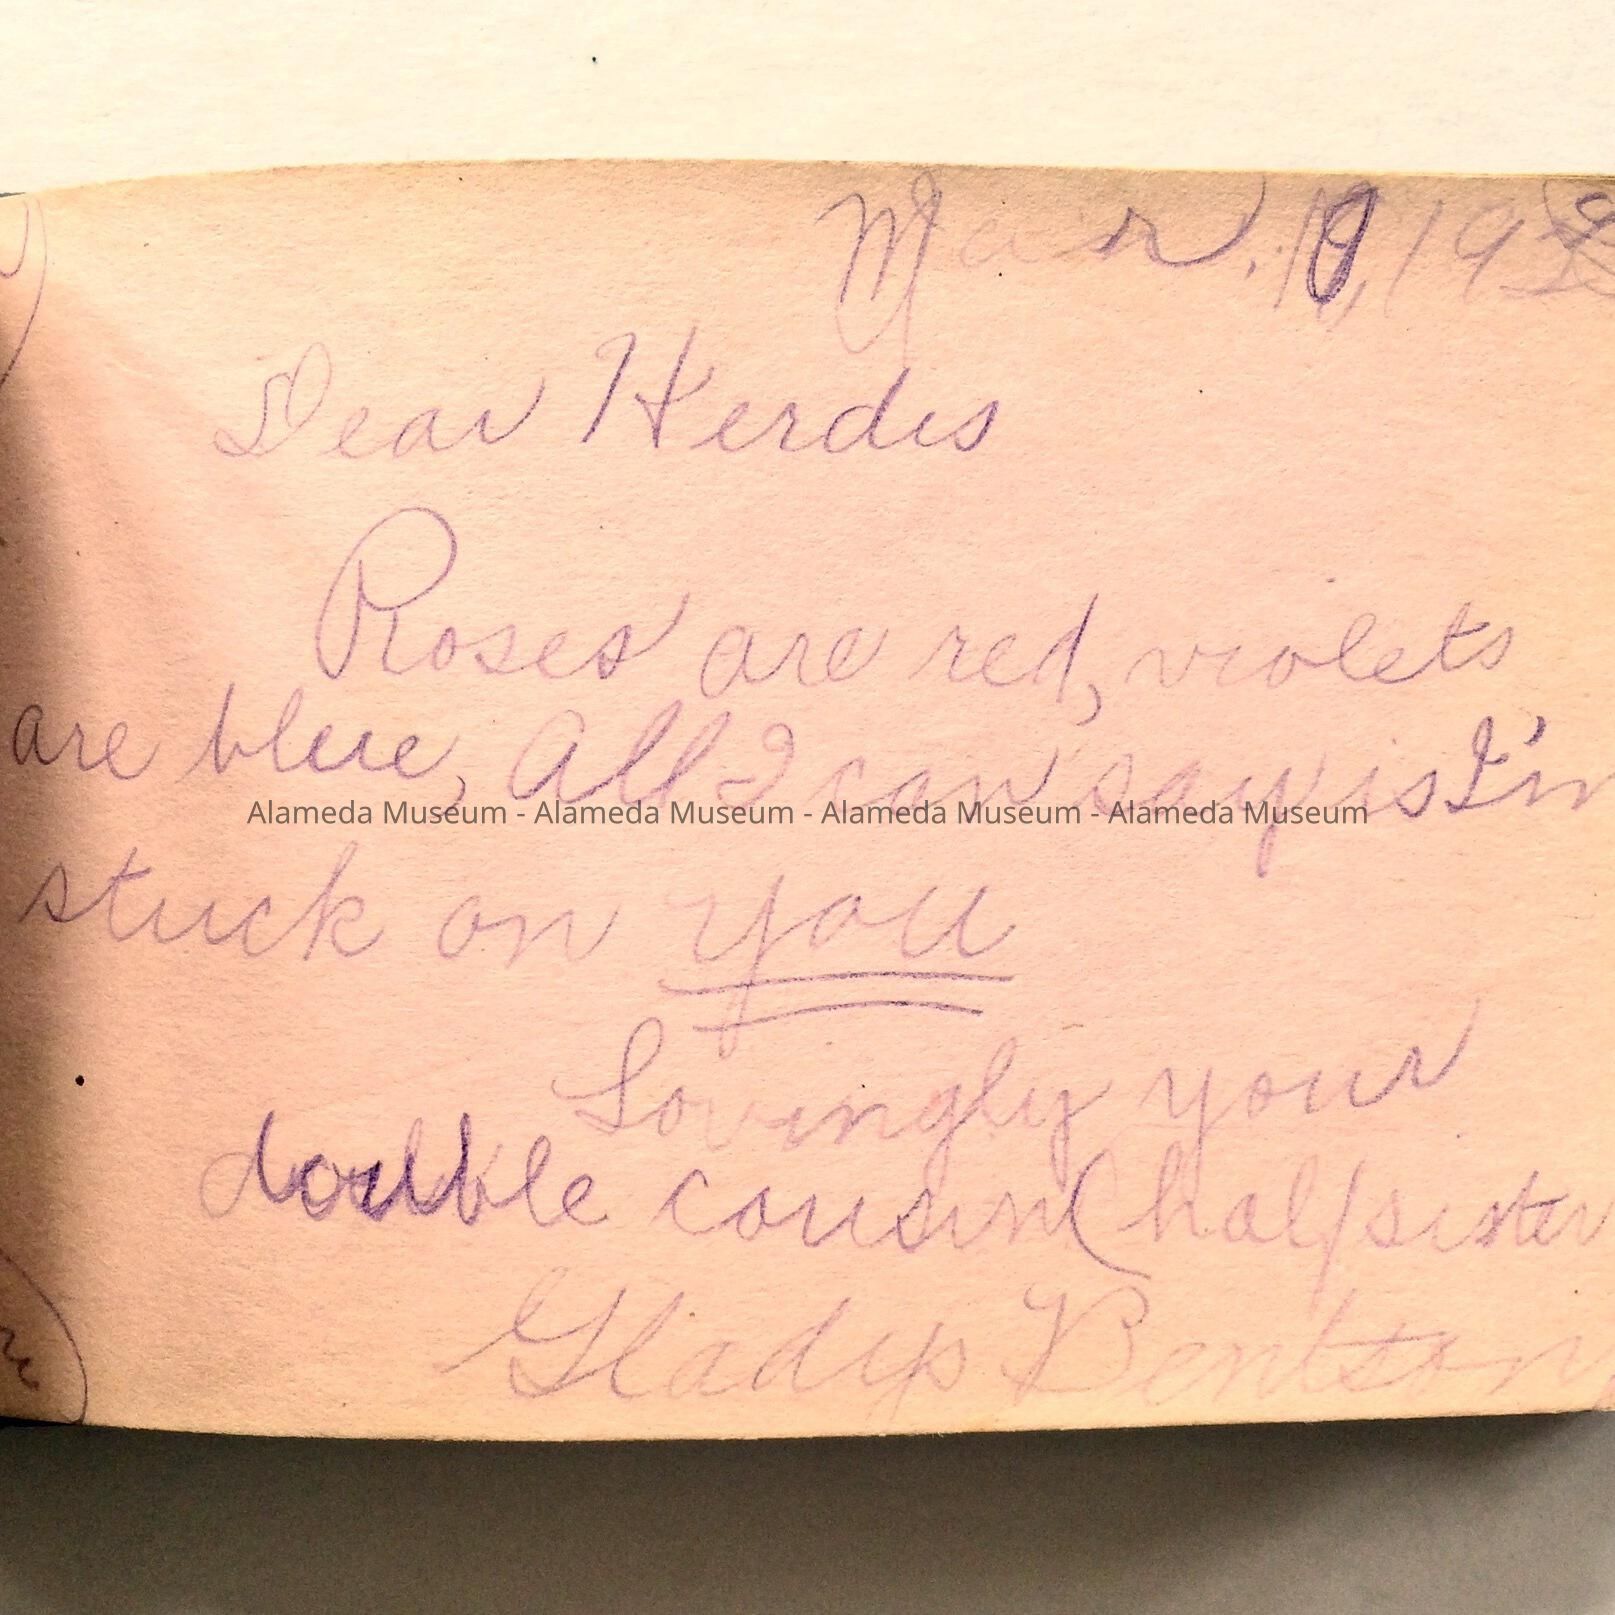 Mar. 19
Dear Herdis
Roses are red, violets
are blue, All I can say is I'm
Alameda Museum - Alameda Museum - Alameda Museum - Alameda Museum
stuck on you
Lovingly your
double cousin (half sister
Gladys Bentson